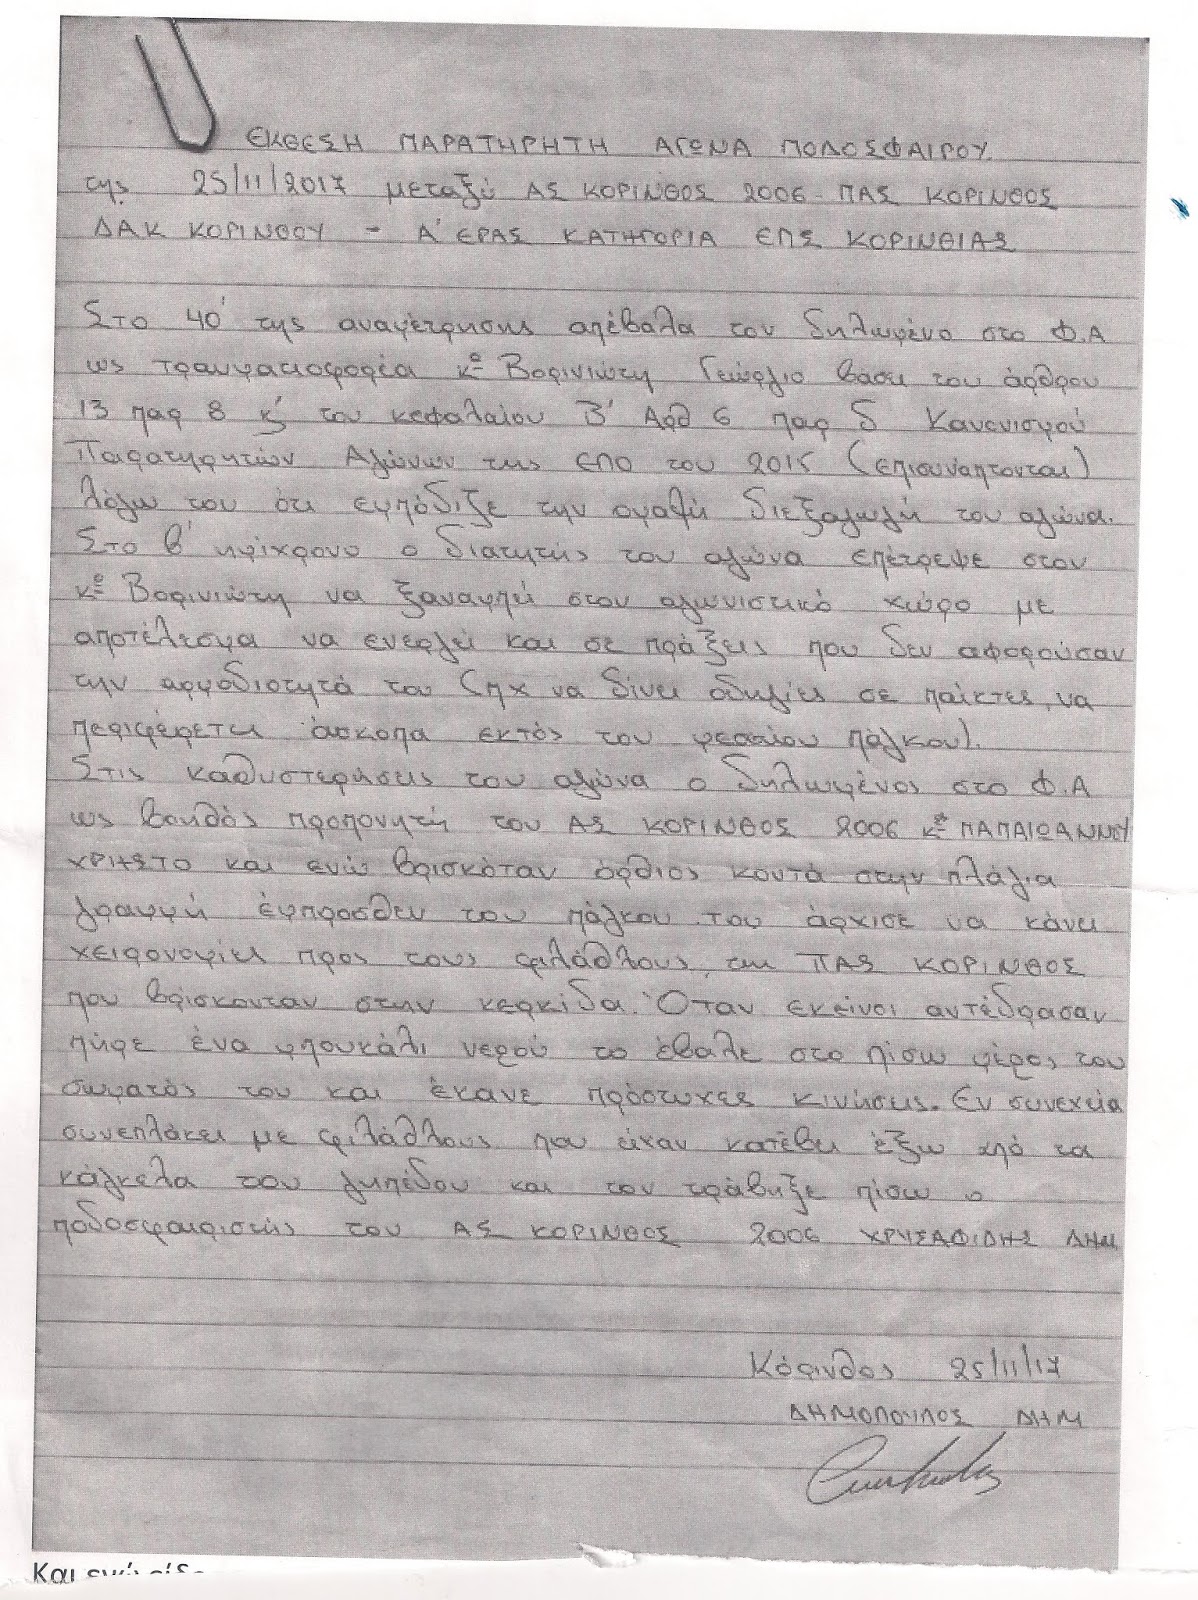 ΕΚΘΕΣΗ ΠΑΡΑΤΗΡΗΤΗ ΑΓΩΝΑ ΠΟΔΟΣΦΑΙΡΟΥ
της 25/11/2017 μεταξύ ΑΣ ΚΟΡΙΝΘΟΣ 2006 - ΠΑΣ ΚΟΡΙΝΘΟΣ
ΔΑΚ ΚΟΡΙΝΘΟΥ - Α' ΕΡΑΣ ΚΑΤΗΓΟΡΙΑ ΕΠΣ ΚΟΡΙΝΘΙΑΣ
Στο 40' της αναμέτρησης απέβαλα τον δηλωμένο στο Φ.Α
ως τραυματιοφορέα κο Βορινιώτη Γεώργιο βάσει του άρθρου
13 παρ 8 κ' του κεφαλαίου Β' Αρθ 6 παρ 5 Κανονισμού
Παρατηρητών Αγώνων της ΕΠΟ του 2015 (επισυνάπτονται)
λόγω του ότι εμπόδιζε την ομαλή διεξαγωγή του αγώνα.
Στο β' ημίχρονο ο διαιτητής του αγώνα επέτρεψε στον
κο Βορινιώτη να ξαναμπεί στον αγωνιστικό χώρο με
αποτέλεσμα να ενεργεί και σε πράξεις που δεν αφορούσαν
την αρμοδιότητά του (πχ να δίνει οδηγίες σε παίκτες, να
περιφέρεται άσκοπα εκτός του μεσαίου πάγκου).
Στις καθυστερήσεις του αγώνα ο δηλωμένος στο Φ.Α
ως βοηθός προπονητή του ΑΣ ΚΟΡΙΝΘΟΣ 2006 κο ΠΑΠΑΙΩΑΝΝΟΥ
ΧΡΗΣΤΟ και ενώ βρισκόταν όρθιος κοντά στην πλάγια
γραμμή έμπροσθεν του πάγκου του άρχισε να κάνει
χειρονομίες προς τους φιλάθλους της ΠΑΣ ΚΟΡΙΝΘΟΣ
που βρίσκονταν στην κερκίδα. Όταν εκείνοι αντέδρασαν
πήρε ένα μπουκάλι νερού το έβαλε στο πίσω μέρος του
σώματός του και έκανε πρόστυχες κινήσεις. Εν συνεχεία
συνεπλάκει με φιλάθλους που είχαν κατέβει έξω από τα
κάγκελα του γηπέδου και τον τράβηξε πίσω ο
ποδοσφαιριστής του ΑΣ ΚΟΡΙΝΘΟΣ 2006 ΧΡΥΣΑΦΙΔΗΣ ΔΗΜ
Κόρινθος 25/11/17
ΔΗΜΟΠΟΥΛΟΣ ΔΗΜ
Και